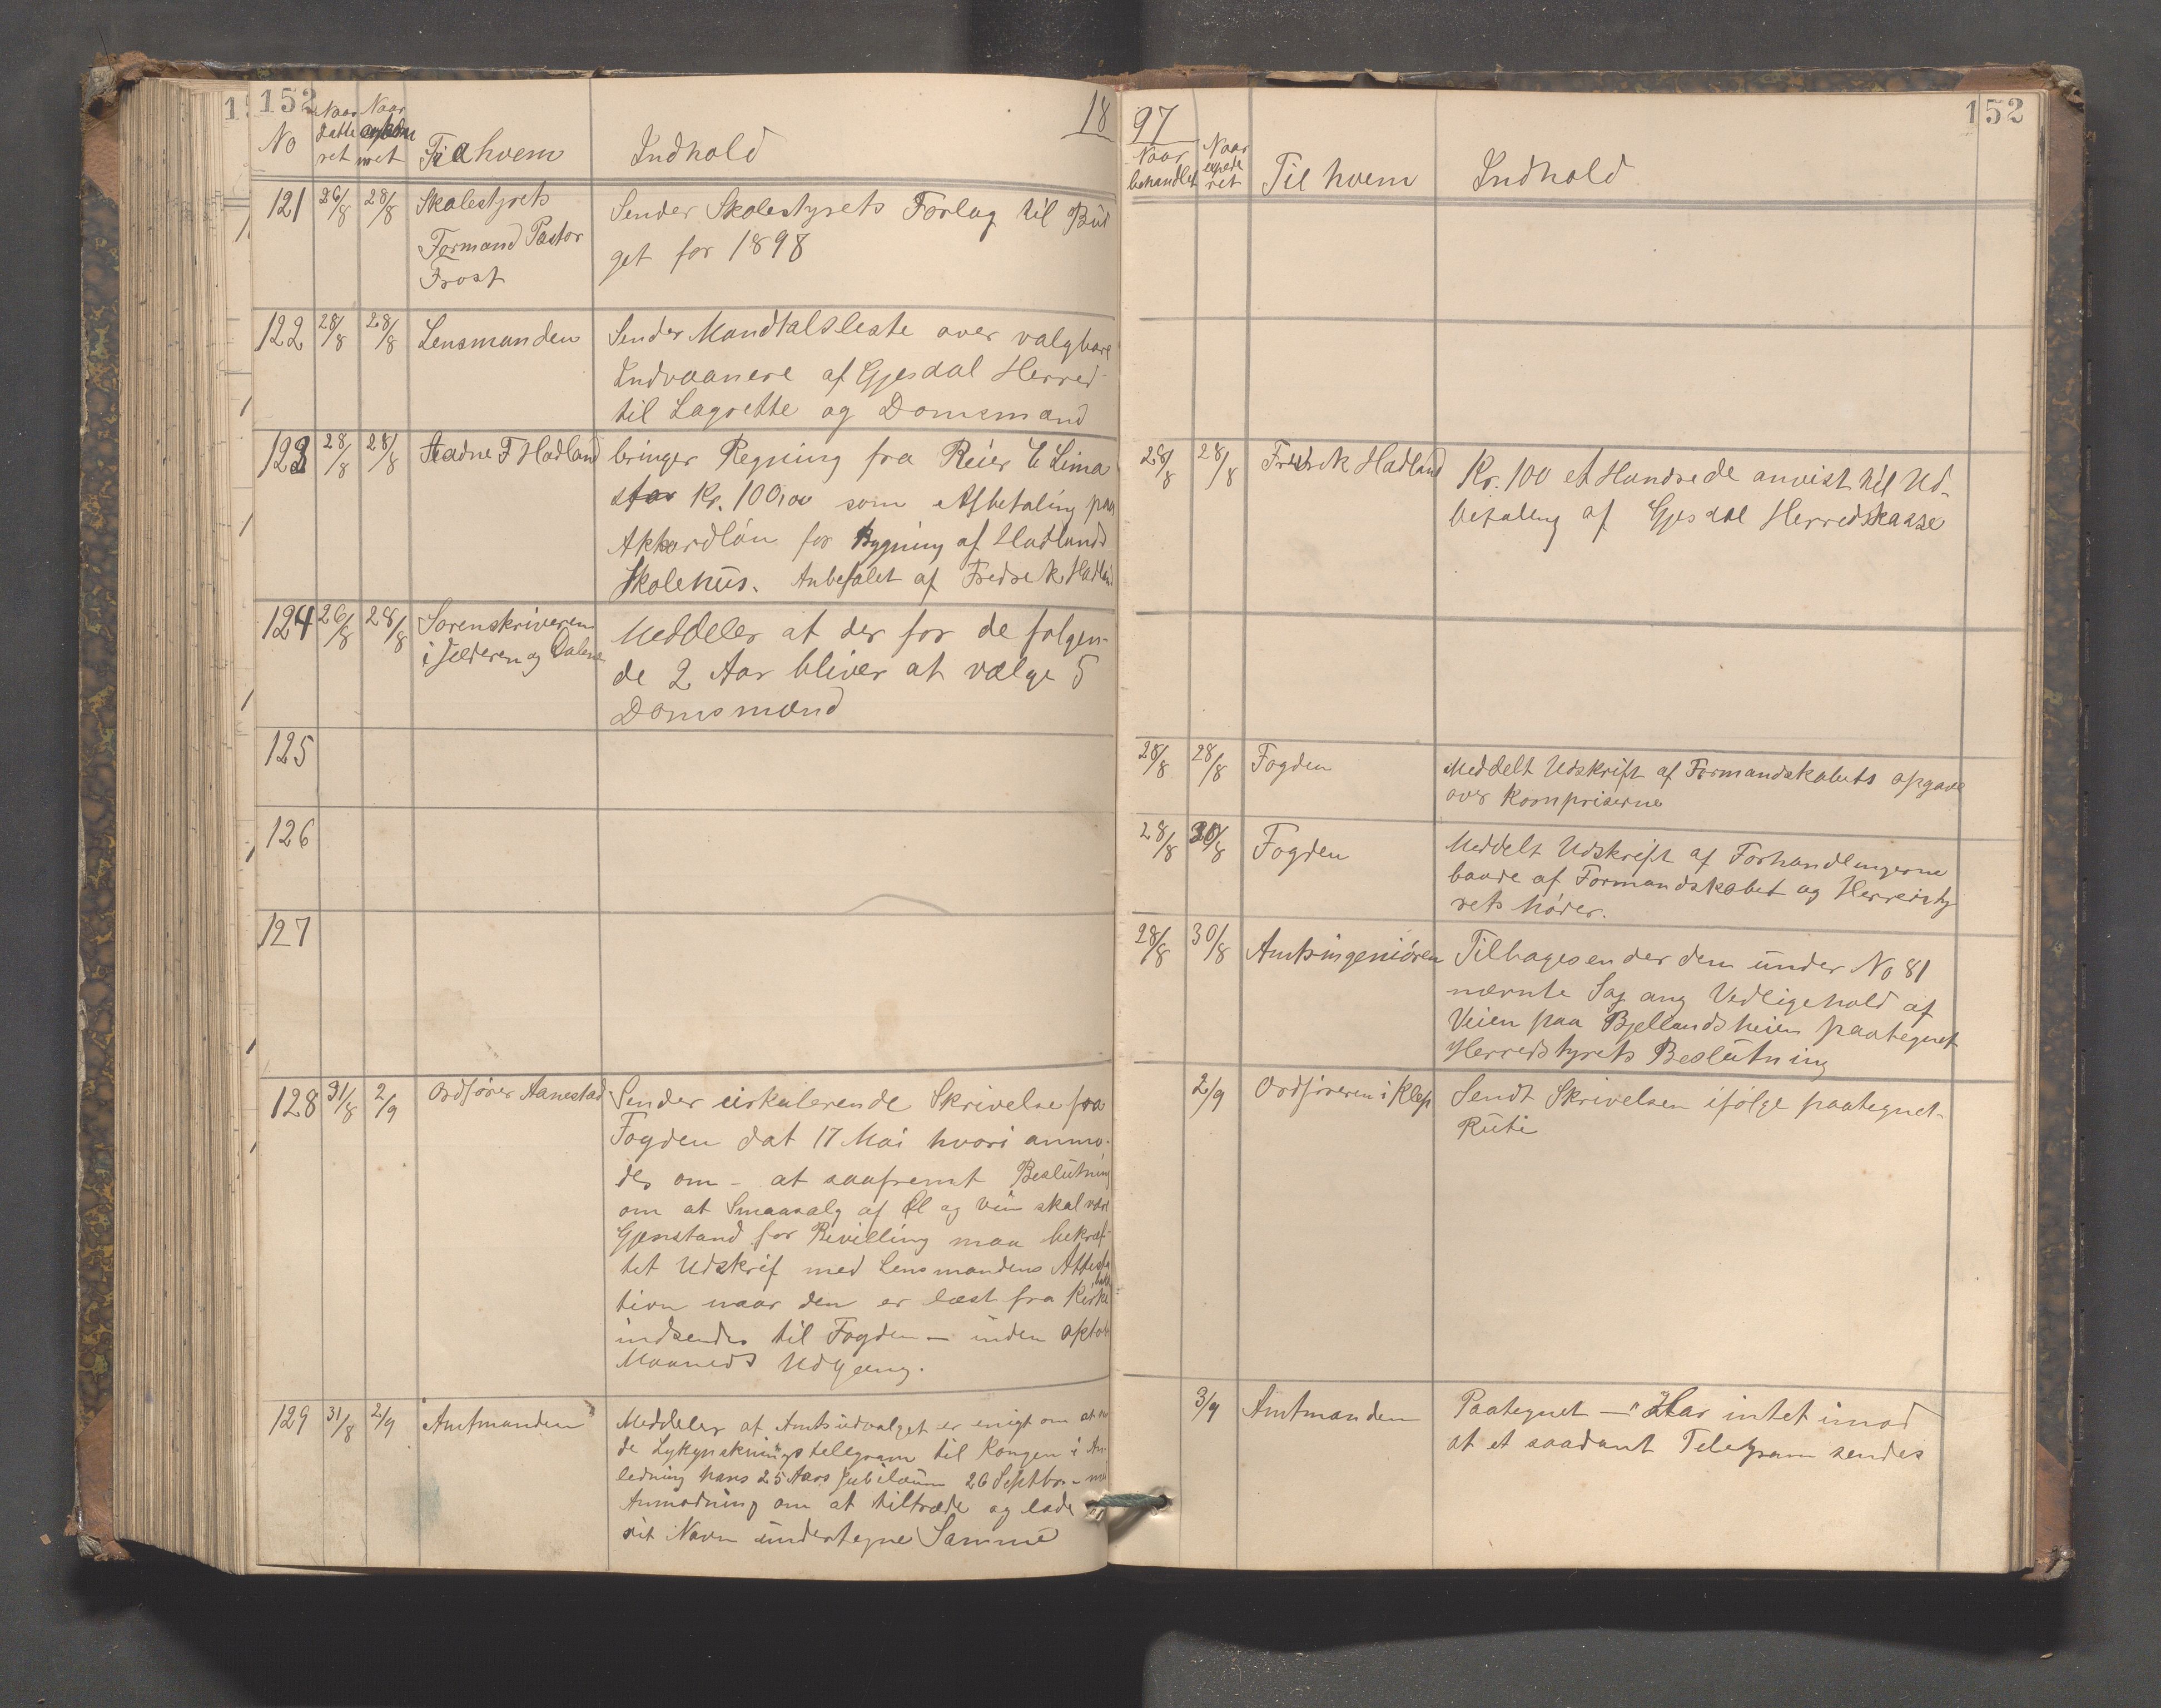 152
18
No
Naar
datte
ret
Naar
ankom
met
Fra hvem
Indhold
121
26/8
28/8
Skolestyrets
Formand Pastor
Frost
Sender Skolestyrets Forlag til Bud
get for 1898
122
28/8
28/8
Lensmanden
Sender Mandtalsleste over valgbare
Indvaanere af Gjesdal Herred
til Lagrette og Domsmænd
123
28/8
28/8
Stadne F Hadland
bringer Regning fra Reier E Lima
stor Kr. 100,00 som Afbetaling paa
Akkordløn for Bygning af Hadlands
Skolehus. Anbefalet af Fredrek Hadland
124
26/8
28/8
Sorenskriveren
i Jæderen og Dalene
Meddeler at der for de følgen-
de 2 Aar bliver at vælge 5
Domsmænd
125
126
127
128
31/8
2/9
Ordfører Aanestad
Sender cirkulerende Skrivelse fra
Fogden dat 17 Mai hvori anmo-
des om - at saafremt Beslutning
om at Smaasalg af Øl og Vin skal være
Gjenstand for Bevilling maa bekræf-
tet Udskrif med Lensmandens Attesta
tion naar den er læst fra Kirke
bak
indsendes til Fogden — inden Oktob
Maaneds Udgang.
129
31/8
2/9
Amtmanden
Meddeler at Amtsudvalget er enigt om at
de Lykynsknings telegram til Kongen i An-
ledning hans 25 Aars Jubilæum 26 Septbr. - me
Anmodning om at tiltræde og lade
sit Navn undertegne Samme
97
152
Naar
behandlet
Naar
expede
ret
Til hvem
Indhold
28/8
28/8
Fredrek Hadland
Kr. 100 et Hundrede anvist til Ud-
betaling af Gjesdal Herredskasse
28/8
28/8
Fogden
Meddelt Udskrift af Formandskabets opgave
over Kornpriserne
28/8
30/8
Fogden
Meddelt Udskrift af Forhandlingerne
baade af Formandskabet og Herredsty
rets Møder.
28/8
30/8
Amtsingeniøren
Tilbagesender den under No 81
nævnte Sag ang Vedligehold af
Veien paa Bjellandsheien paategnet
Herredstyrets Beslutning
2/9
Ordføreren i Klep
Sendt Skrivelsen ifølge paategnet
Rute
3/9
Amtmanden
Paategnet — "Har intet imod
at et saadant Telegram sendes